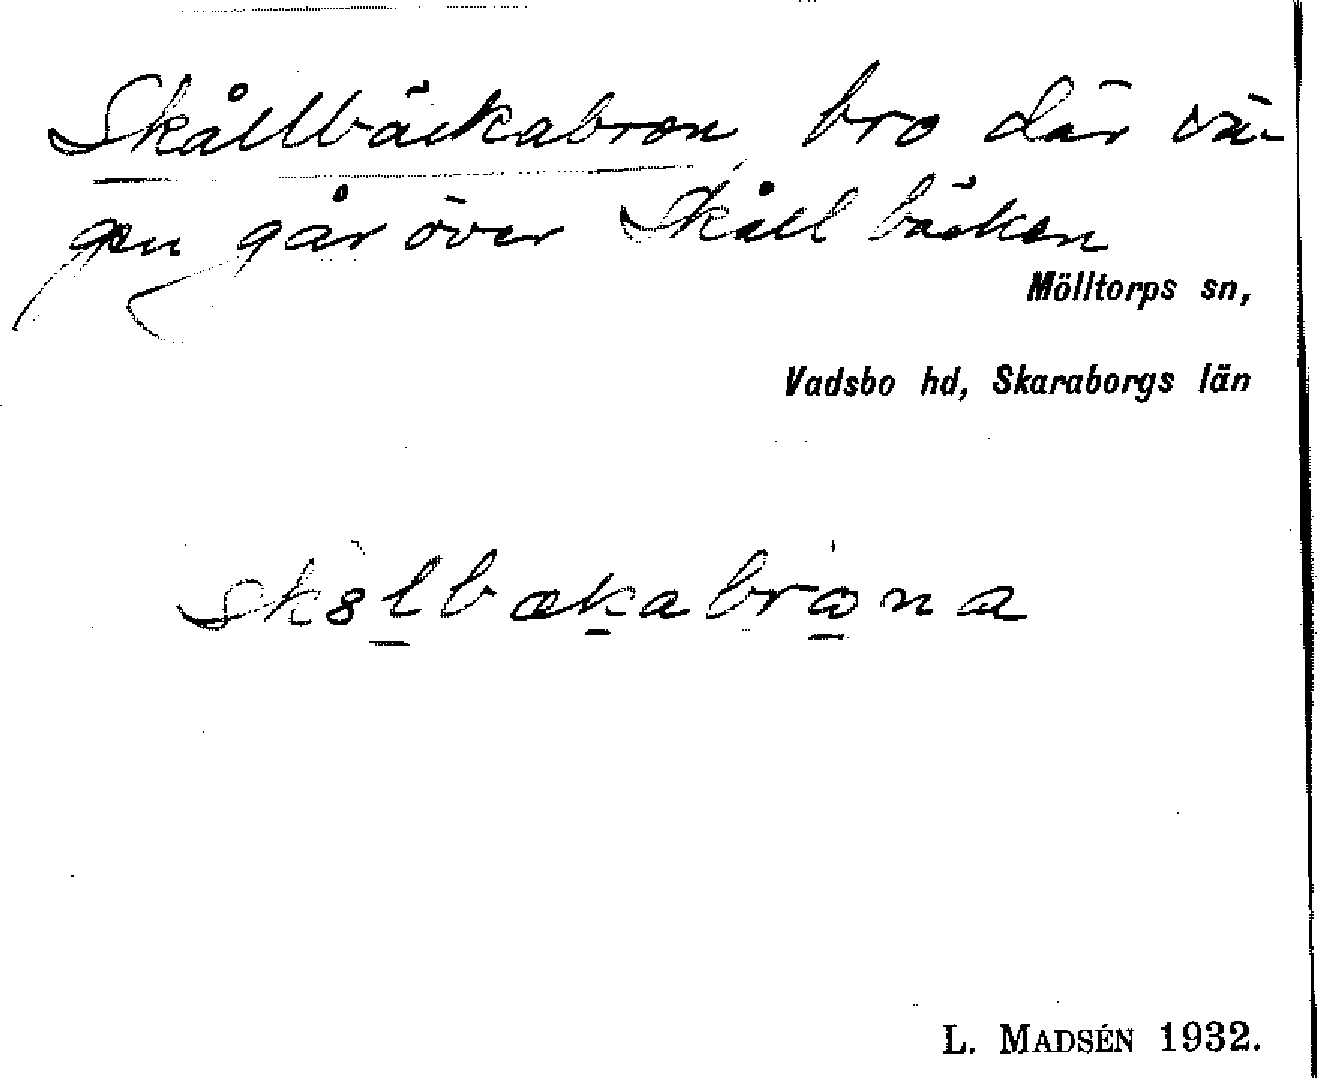 Skållbäckabron, bro där vä-
gen går över Skållbäcken
Mölltorps sn,
Vadsbo hd, Skaraborgs län
sk8lbækabrωna
L. MADSÉN 1932.